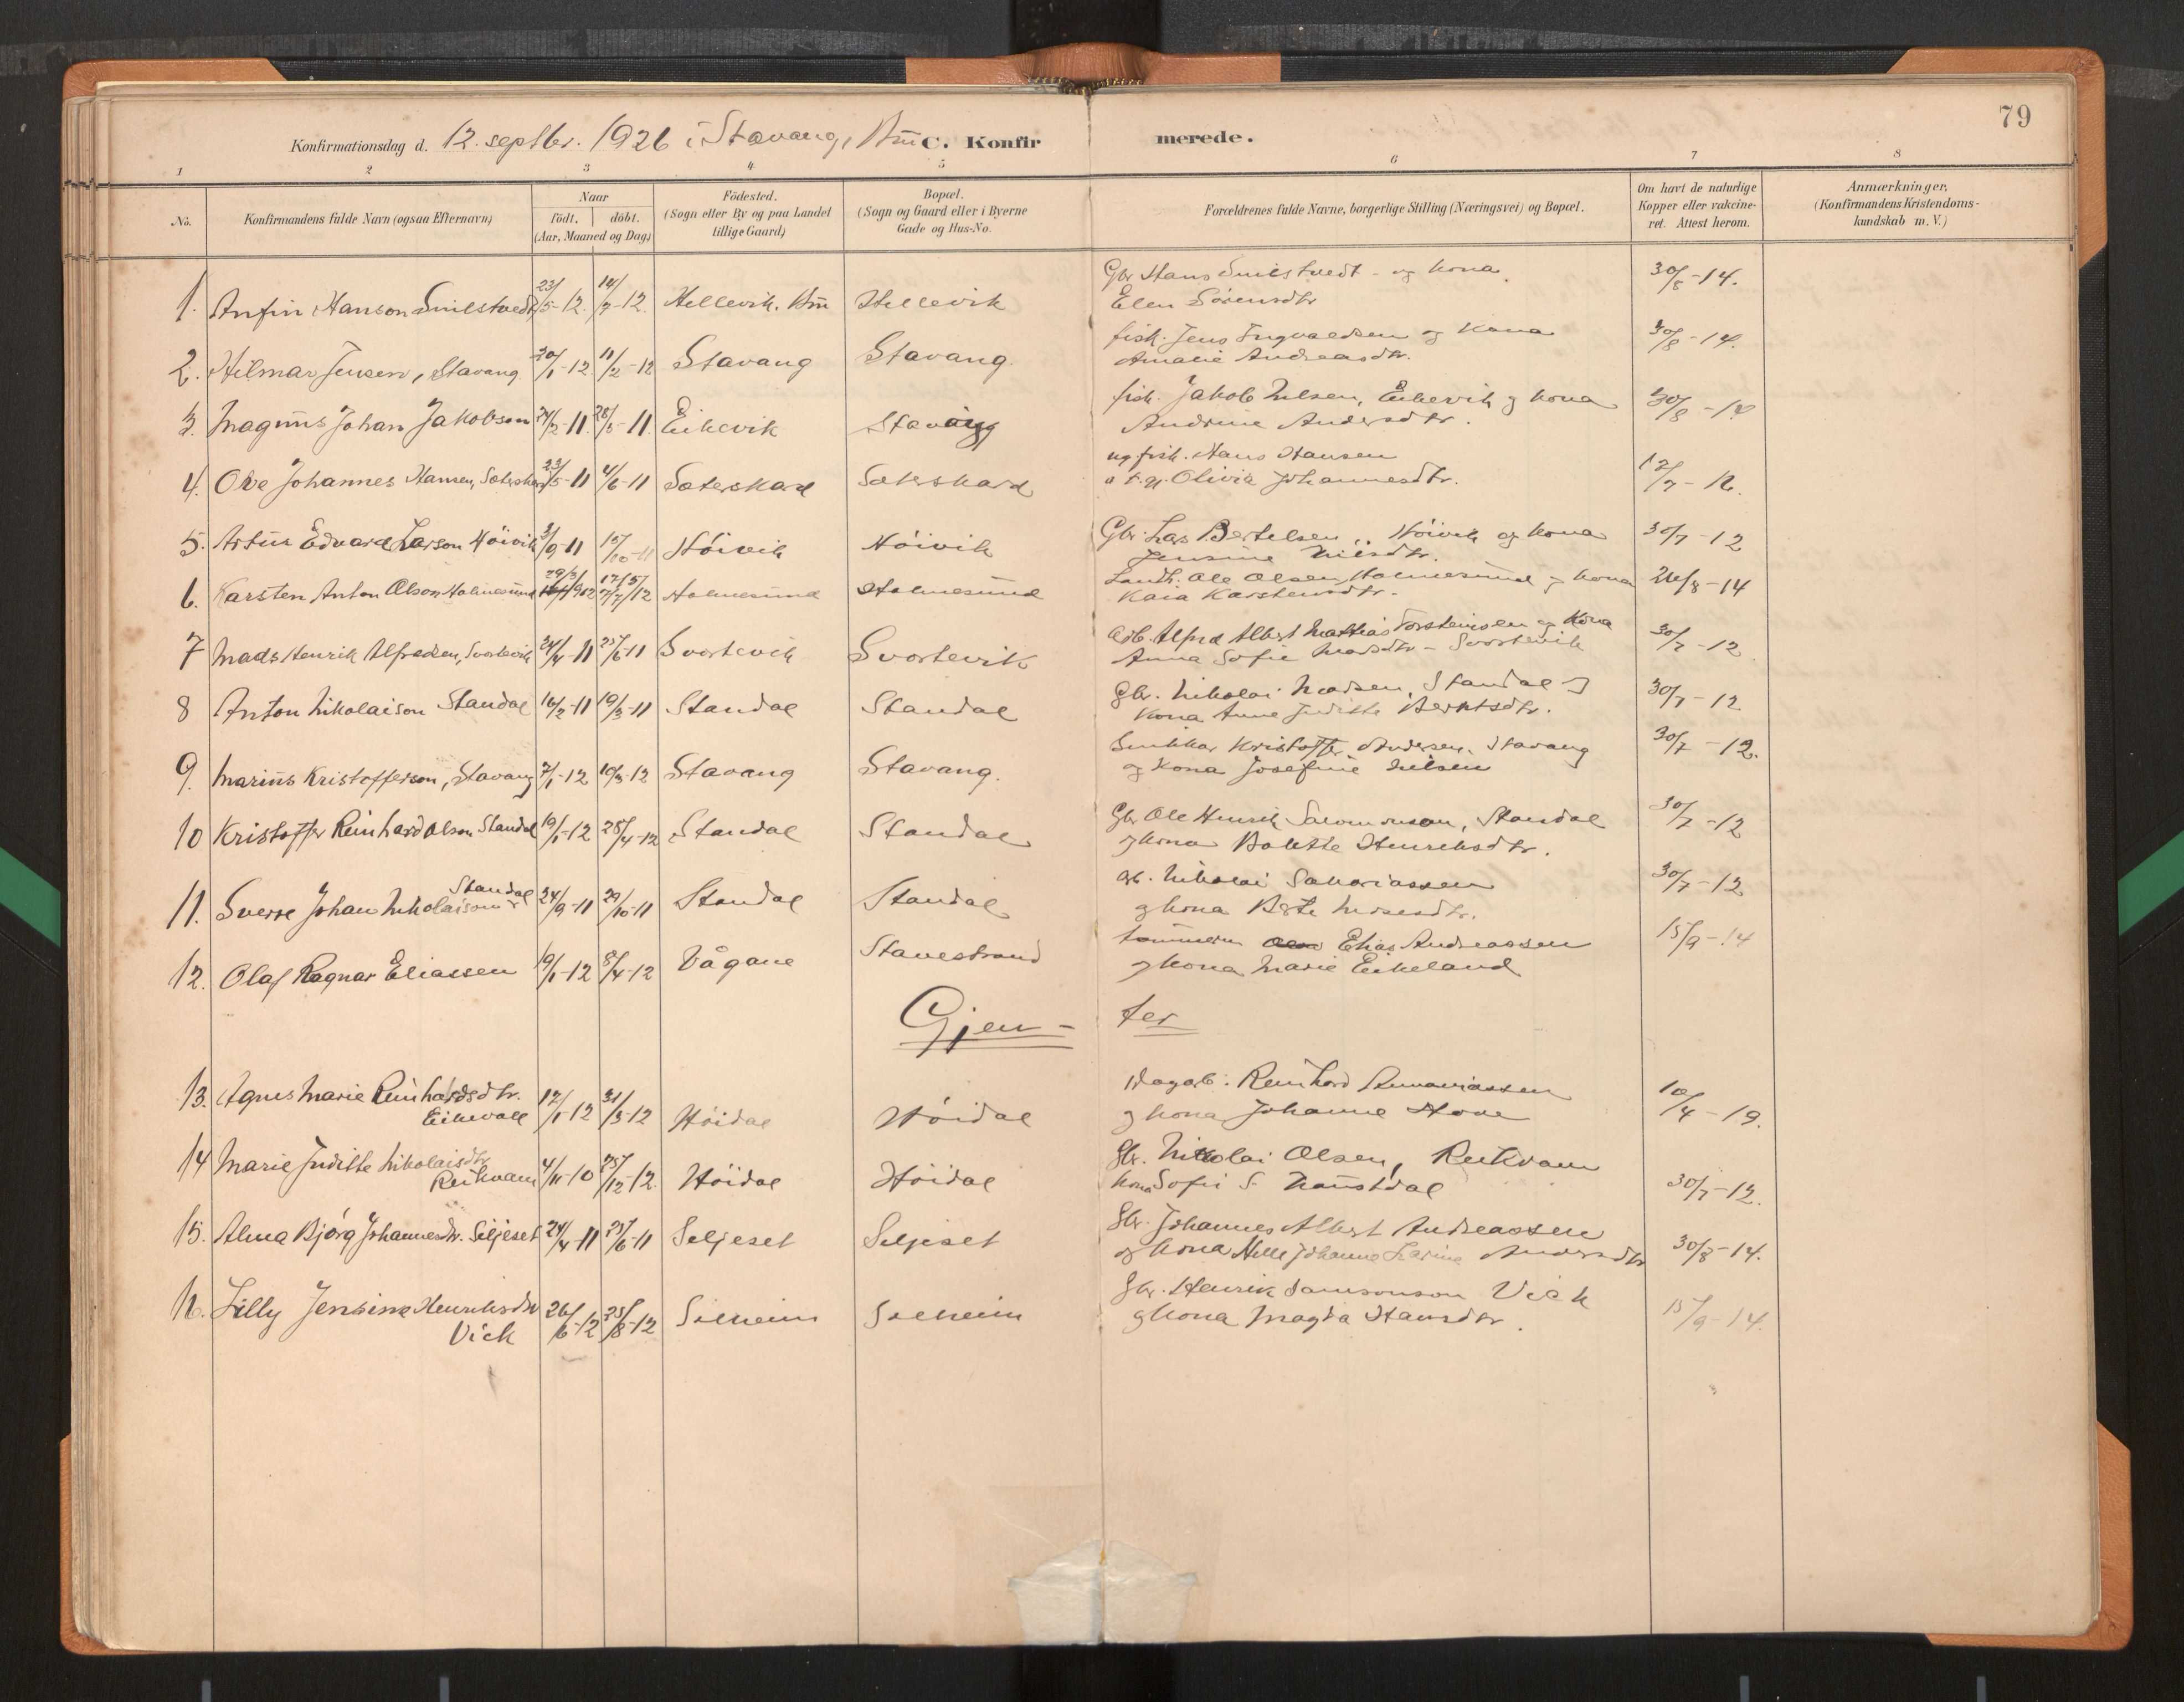 79
Konfirmationsdag d. 12. septbr. 1926 i Stavang, C. Konfirmerede.
1 2 3 4 5 6 7 8
No. Konfirmandens fulde Navn (ogsaa Efternavn) Naar födt. döbt. (Aar, Maaned og Dag) Födested. (Sogn eller By og paa Landet tillige Gaard) Bopæl. (Sogn og Gaard eller i Byerne Gade og Hus-No. Forældrenes fulde Navne, borgerlige Stilling (Næringsvei) og Bopæl. Om havt de naturlige Kopper eller vakcineret. Attest herom. Anmærkninger, (Konfirmandens Kristendomskundskab m. V.)
1. Anfin Hanson 23/5-12 14/7-12 Hellevik Hellevik Gbr Hans og kona 30/8-14.
Elen Sörensdtr
2. Hilmar Jensen, Stavang 30/1-12 11/2-12 Stavang Stavang. fisk. Jens Ingvaldsen og kona 30/8-14.
Amalie Andreasdtr.
3. Magnus Johan Jakobson 24/2-11 28/5-11. Eikevik Stavang fisk. Jakob Nilsen, Eikevik og kona 30/8-14
Andrine Andersdtr.
4. Ove Johannes Hansen, Sæterskard 23/5-11 4/6-11 Sæterskard Sæterskard ug. fisk. Hans Hansen
Olivia Johannesdtr.
5. Artur Edvard Larson Höivik 3/9-11 15/10-11 Höivik Höivik Gbr. Lars Bertelsen, Höivik og kona 30/7-12
Jensine Nilsdtr.
6. Karsten Anton Olson Holmesund 29/3 17/5 Holmesund Holmesund Landh. Ole Olsen, Holmesund og kona 24/8-14
Kaia Karstensdtr.
7 Mads Henrik Alfredsen, Svortevik 24/4-11 25/6-11 Svortevik Svortevik Alfred Albert Mathias Torsteinsen og Kona 30/7-12
Anna Sofie Madsdtr - Svortevik
8 Anton Nikolaison Standal 16/2-11 19/3-11 Standal Standal Gbr. Nikolai Madsen, Standal og 30/7-12
Kona Anne Juditte Berntsdtr.
9. Marius Kristofferson, Stavang 7/1-12 10/3-12 Stavang Stavang. Snikkar Kristoffer Andersen. Stavang 30/7-12.
og Kona Josefine Nilsen
10 Kristoffer Reinhard Olson Standal 19/1-12 28/4-12 Standal Standal Gbr Ole Henrik Salomonson, Standal 30/7-12
og kona Bolette Henriksdtr.
11. Sverre Johan Nikolaison Standal 24/9-11 29/10-11 Standal Standal Nikolai Sakariassen 30/7-12
og kona Berte
12. Olaf Ragnar Eliassen 19/1-12 8/4-12 Vågane Stavestrand Elias Andreassen 15/9-14
og kona Marie Eikeland
Gjenter
13. Agnes Marie Reinhardsdtr. 17/1-12 31/3-12 Höidal Höidal Dagarb. Reinhard 10/4-19.
Eikevoll og kona Johanne Hove
14 Marie Juditte Nikolaisdtr 4/11-10 25/12-12. Höidal Höidal Gbr. Nikolai Olsen, Reikvam 30/7-12.
Reikvam kona Sofie S. Naustdal
15. Alma Björg Johannesdtr. Seljeset 24/4-11 25/6-11 Seljeset Seljeset Gbr. Johannes Albert Andreassen 30/8-14.
og kona Helle Johanne Larine Andersdtr
16. Lilly Jensine Henriksdtr 26/6-12 25/8-12 Solheim Solheim Gbr. Henrik Samsonson Vick 15/9-14.
Vick og kona Magda Hansdtr.